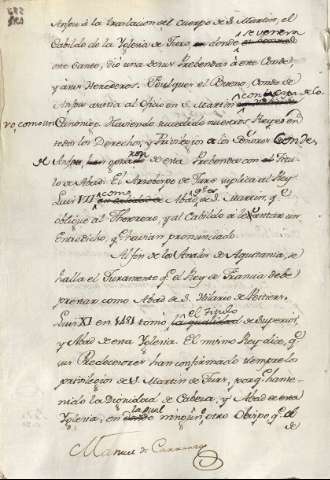 Anjou à la traslacion del Cuerpo de S. Martin, el
se venera
Cabildo de la Yglesia de Turs, en donde
este Santo, dió una de sus Prebendas à este Conde,
y à sus Herederos. Foulques el Bueno, Conde de
Anjou asistia al Oficio en S. Martin
Canonigo. Haviendo sucedido nuestros Reyes en
todos los Derechos, y Privilegios de los Señores Condes
de Anjou, han gozado de esta Prebenda con el Titu
lo de Abad. El Arzobispo de Turs suplica al Rey
Luis VII como Abad, de S. Martin, que
obligue al Thesorero, y al Cabildo à levantar un
Entredicho, que havian pronunciado.
Al fin de los Anales de Aquitania, se
halla el Juramento que el Rey de Francia debe
prestar como Abad de S. Hilario de Poitiers.
el titulo
Luis XI en 1481 tomó la qualidad de Superior,
y Abad de esta Yglesia. El mismo Rey dice, que
sus Predecesores han confirmado siempre los
privilegios de S. Martin de Turs, porque han te-
nido la Dignidad de Cabeza, y Abad de esta
la qual
Yglesia, en ningun otro Obispo, que el
de
Manuel de Carranza